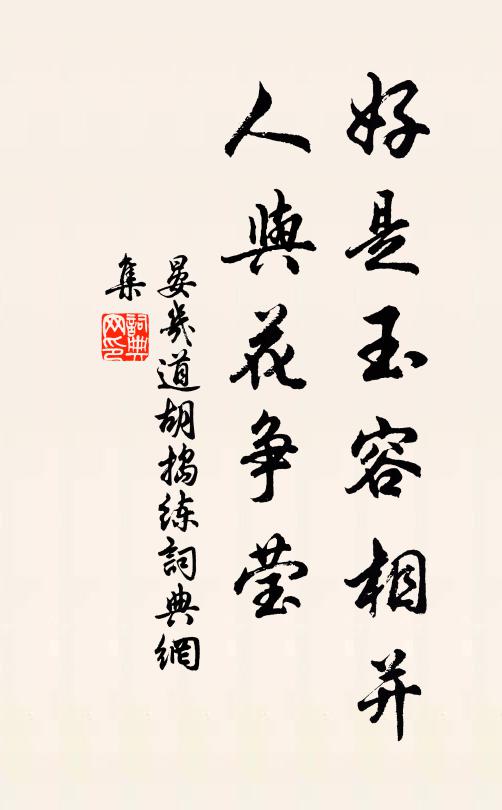 好是玉容相并
人與花争莹
晏幾道胡搗练詞典網
集
詞典网印